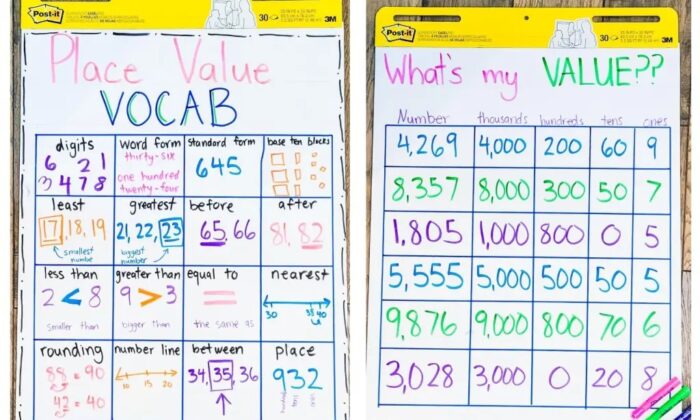 Post-it
30
3M
Place Value
VOCAB
digits
6 21
3 4 7 8
word form
thirty-six
one hundred
twenty-four
standard form
645
base ten blocks
least
17, 18, 19
smallest
number
greatest
21, 22, 23
biggest
number
before
65, 66
after
81, 82
less than
2 < 8
smaller than
greater than
9 > 3
bigger than
equal to
=
the same as
nearest
30 38 40
rounding
88 = 90
42 = 40
number line
10 15 20
between
34, 35, 36
place
932
hundreds tens ones
Post-it
30
3M
What's my VALUE??
Number thousands hundreds tens ones
4,269 4,000 200 60 9
8,357 8,000 300 50 7
1,805 1,000 800 0 5
5,555 5,000 500 50 5
9,876 9,000 800 70 6
3,028 3,000 0 20 8